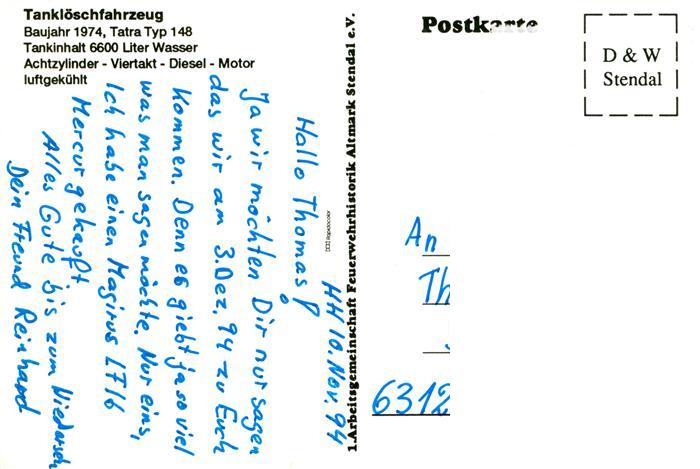 Tanklöschfahrzeug
Baujahr 1974, Tatra Typ 148
Tankinhalt 6600 Liter Wasser
Achtzylinder - Viertakt - Diesel - Motor
luftgekühlt
HH 10. Nov. 94
Hallo Thomas!
Ja wir möchten Dir nur sagen
das wir am 3. Dez. 94 zu Euch
kommen. Denn es giebt ja so viel
was man sagen möchte. Nur eins,
Ich habe einen Magirus L716
Mercur gekauft
Alles Gute bis zum Wiedersehn
Dein Freund Reinhard
1.Arbeitsgemeinschaft Feuerwehrhistorik Altmark Stendal e.V.
Rapidocolor
Postkarte
D & W
Stendal
An
Th
6312